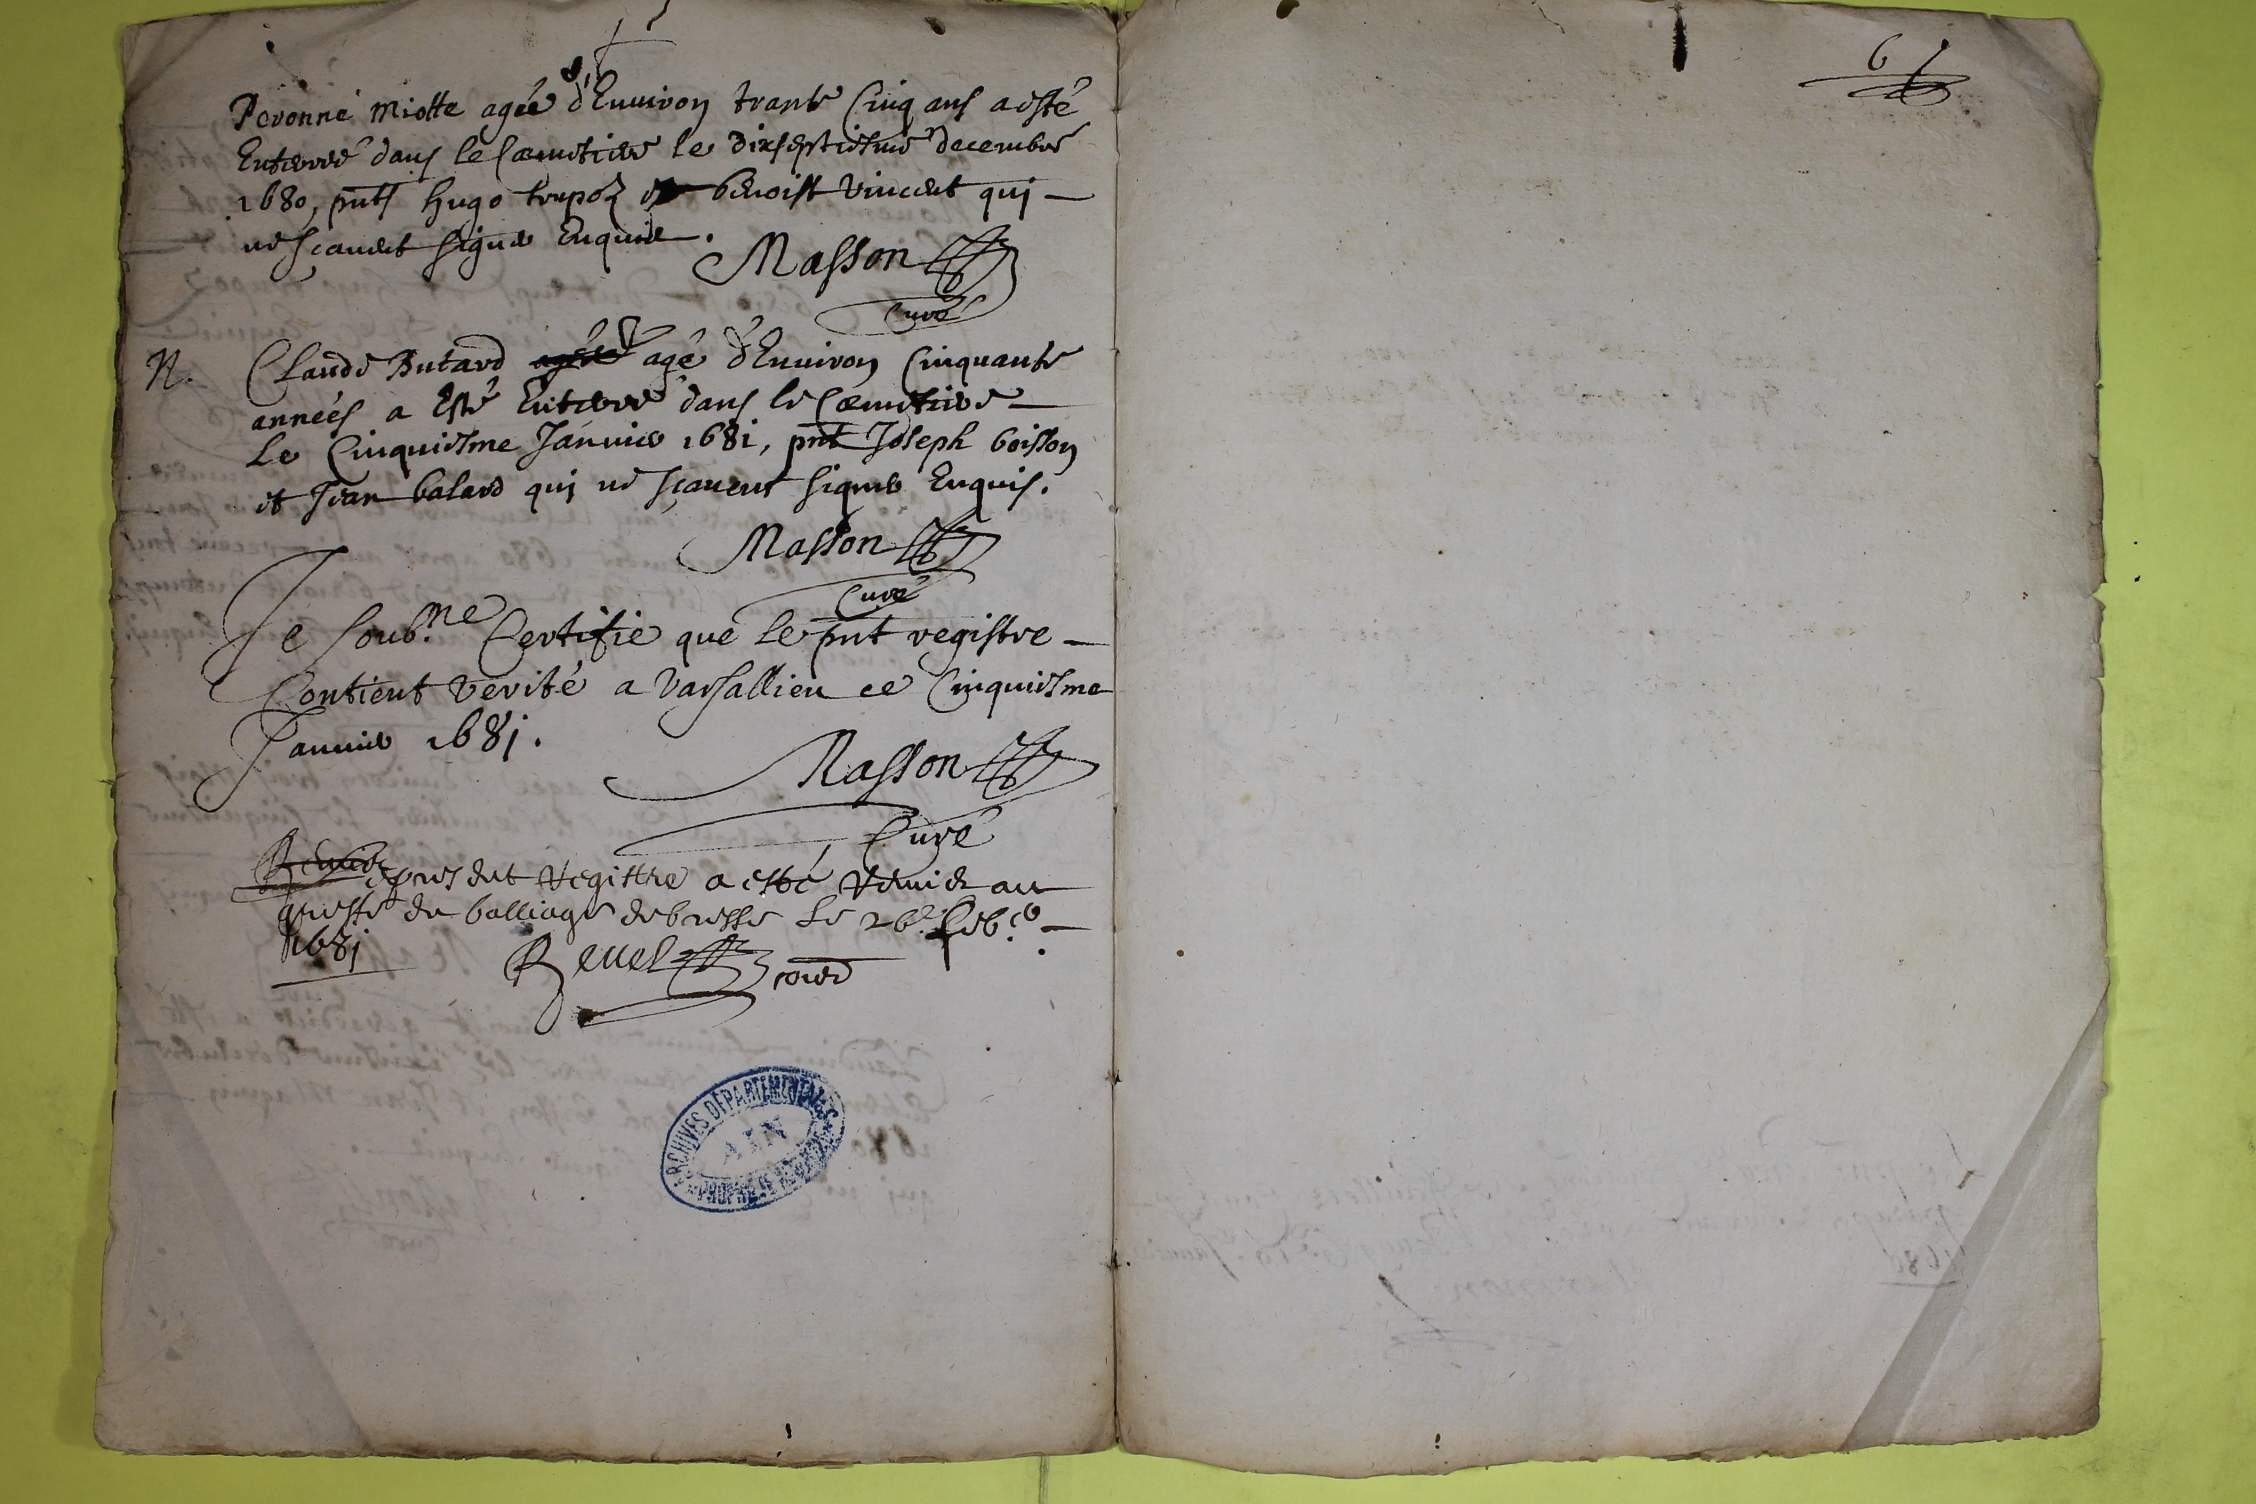 Peronne Miotte agée d'Environ trante Cinq ans a esté
Enterreé dans le Cœmetiere le Dixseptiesme decembre
1680, pnts Hugo trupoz et benoist vincent qui
ne scavent signer Enquis.
Masson
Curé
N. Claude Butard agé d'Environ Cinquante
années a Esté Enterré dans le Cœmetiere
Le Cinquiesme Janvier 1681, pnt Joseph boisson
et Jean balard qui ne sçavent signer Enquis.
Masson
Curé
Je soub.ne Certifie que le pnt registre
Contient verité a varsallieu ce Cinquiesme
Janvier 1681.
Masson
Curé
Registre a esté Remis au
greffe du balliage de bresse Le 26e feb.
1681
Revel
6
ARCHIVES DÉPARTEMENTALES
AIN